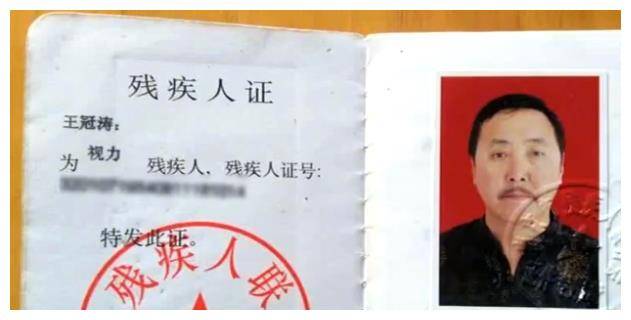 残疾人证
王冠涛：
为 视力 残疾人、残疾人证号：
特发此证。
残疾人联